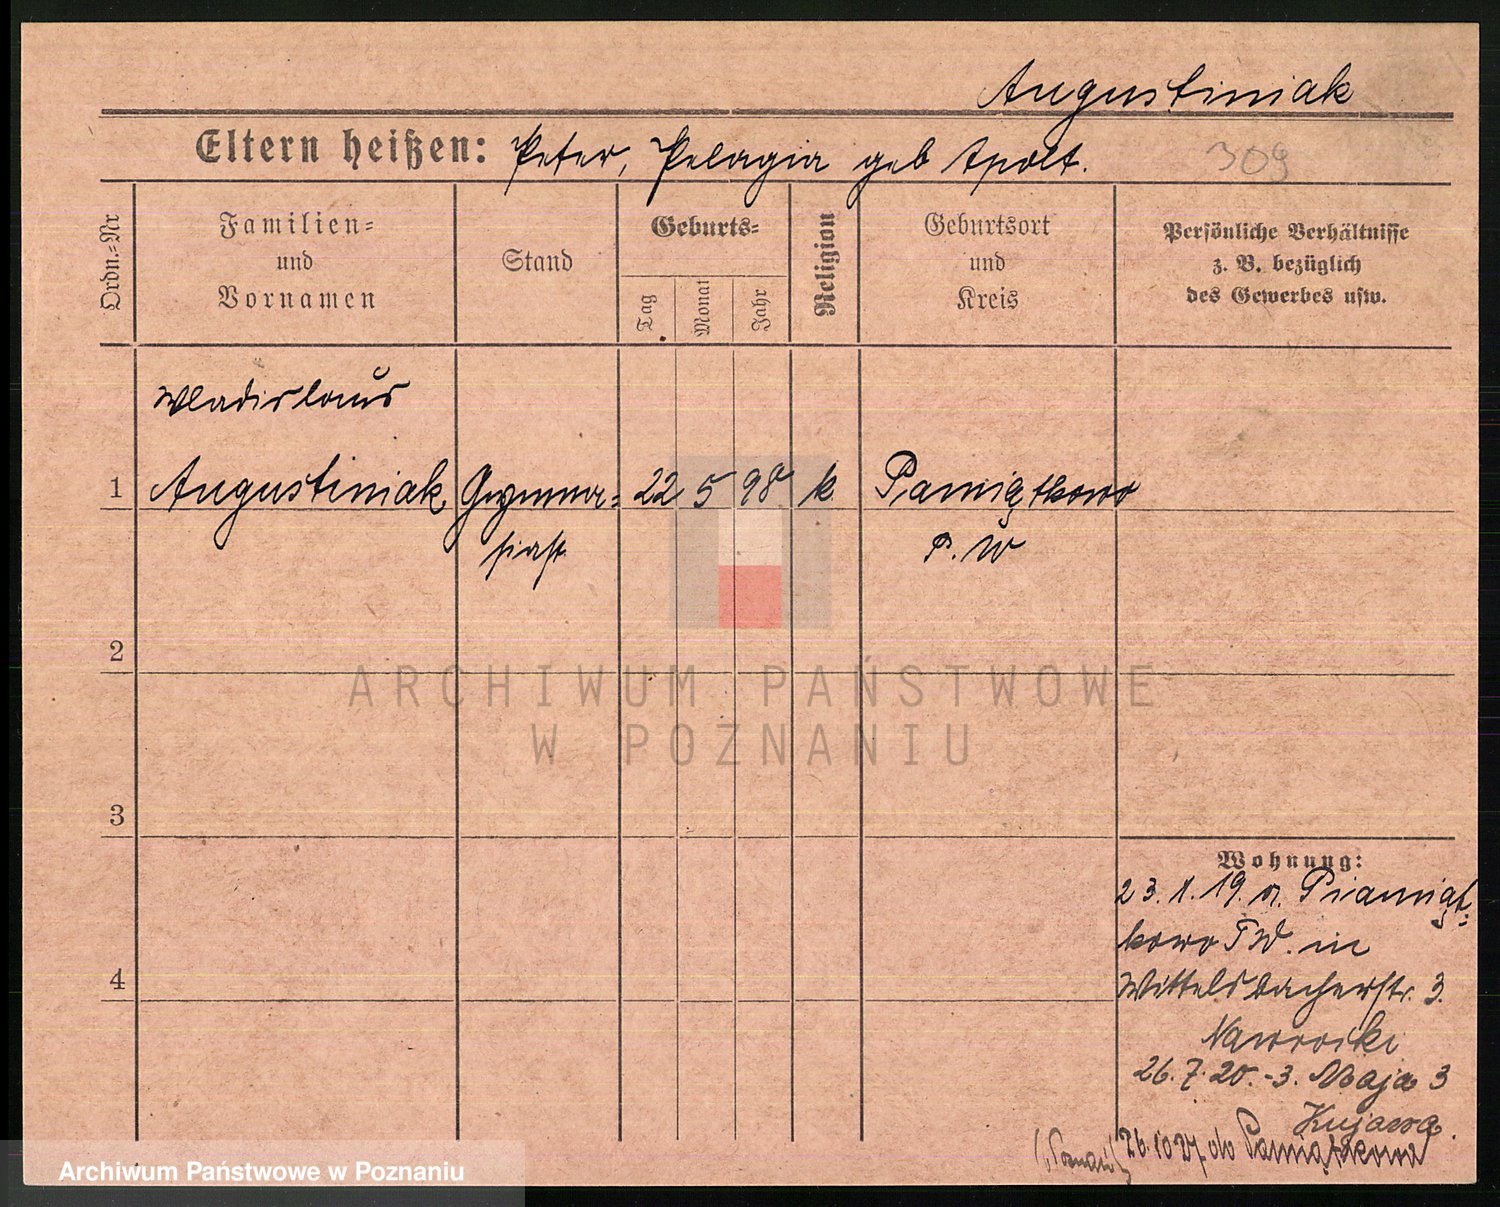 Augustiniak
Eltern heißen: Peter, Pelagia geb Apolt.
309
Ordn.=Nr
Familien=
und
Vornamen
Stand
Geburts=
Tag
Monat
Jahr
Religion
Geburtsort
und
Kreis
Persönliche Verhältnisse
z. B. bezüglich
des Gewerbes usw.
Wladislaus
1 Augustiniak Gymna= 22 5 98 k Pamiątkowo
siast P. W
2
3
4
Wohnung:
23.1.19. v. Piamiąt=
kowo P.W. in
Wittelsbacherstr. 3.
Nawrocki
26.7.20.-3. Maja 3
Kujawa.
26.10 27 do Pamiątkowa
ARCHIWUM PAŃSTWOWE
W POZNANIU
Archiwum Państwowe w Poznaniu